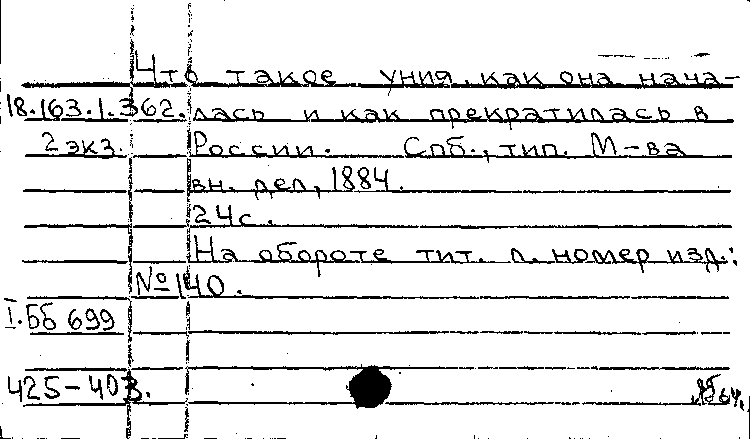 Что такое уния, как она нача-
18.163.1.362. лась и как прекратилась в
2 экз. России. Спб., тип. М-ва
вн. дел, 1884.
24с.
На обороте тит. л. номер изд.:
№140.
I.Бб 699
425-403.